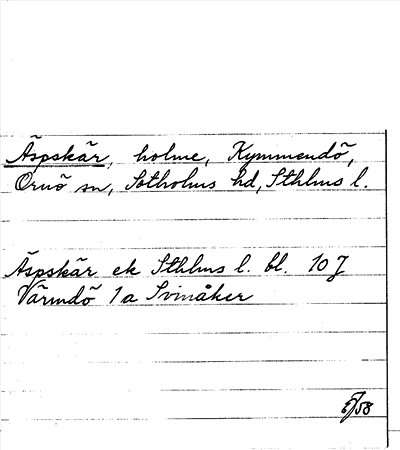 Äspskär, holme, Kymmendö,
Ornö sn, Sotholms hd, Sthlms l.
Äspskär ek Sthlms l. bl. 10 J
Värmdö 1 a Svinåker
/58